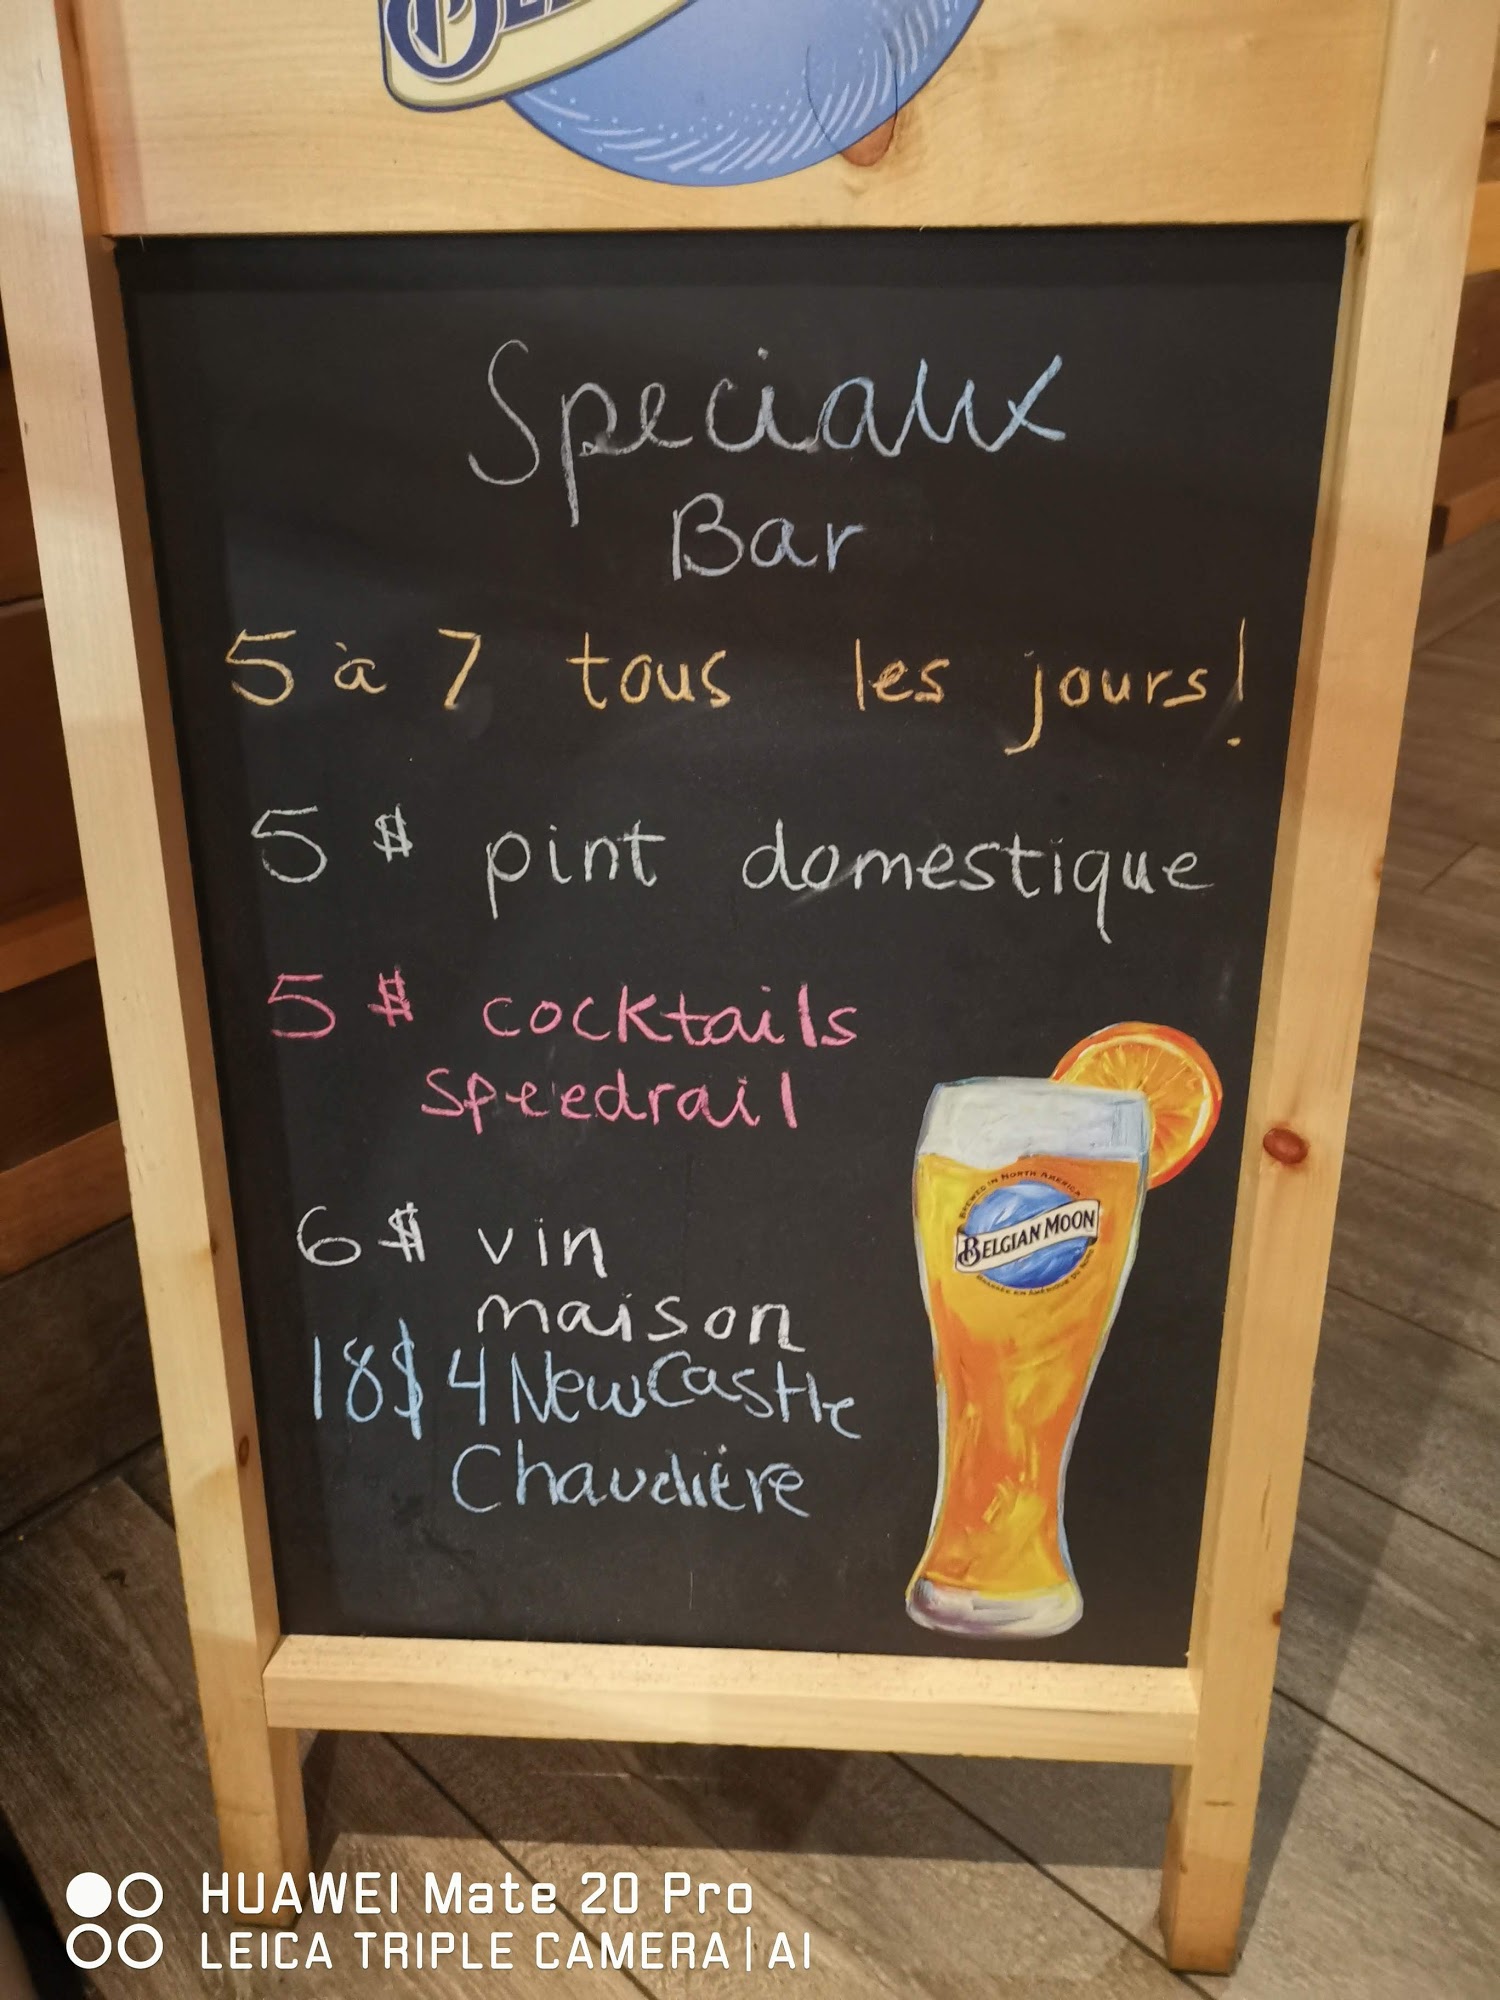 Speciaux
Bar
5 à 7 tous les jours!
5 $ pint domestique
5 $ cocktails
speedrail
6 $ vin
maison
18$ 4 NewCastle
Chaudière
BREWED IN NORTH AMERICA
BELGIAN MOON
BRASSÉE EN AMÉRIQUE DU NORD
HUAWEI Mate 20 Pro
LEICA TRIPLE CAMERA | AI